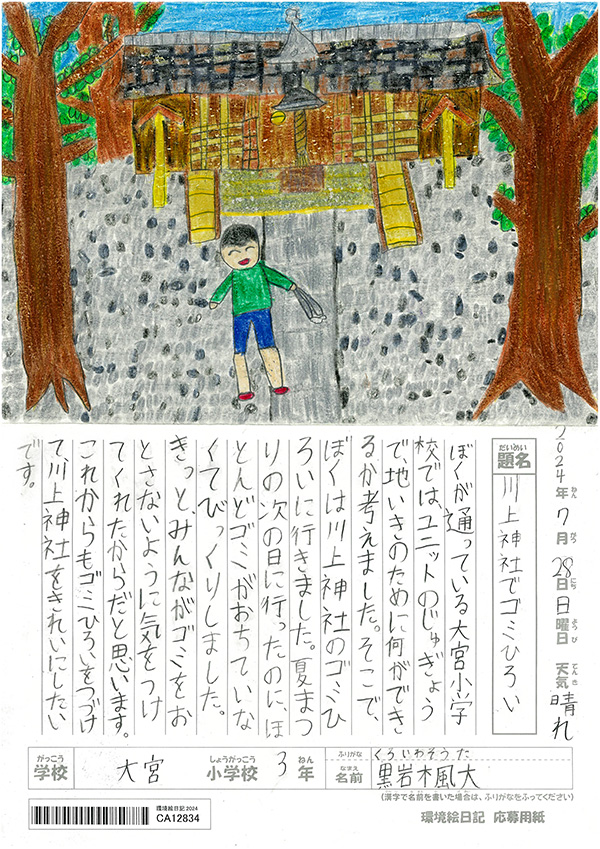 2024年7月28日日曜日 天気晴れ
ねん がつ にち ようび てんき
だいめい
題名
川上神社でゴミひろい
ぼくが通っている大宮小学
校では、ユニットのじゅぎょう
で、地いきのために何ができ
るか考えました。そこで、
ぼくは川上神社のゴミひ
ろいに行きました。夏まつ
りの次の日に行ったのに、ほ
とんどゴミがおちていな
くてびっくりしました。
きっと、みんながゴミをお
とさないように気をつけ
てくれたからだと思います。
これからもゴミひろいをつづけ
て、川上神社をきれいにしたい
です。
がっこう
学校
大宮
しょうがっこう
小学校
3
ねん
年
ふりがな
くろいわそうた
なまえ
名前
(漢字で名前を書いた場合は、ふりがなをふってください)
環境絵日記2024
CA12834
環境絵日記 応募用紙